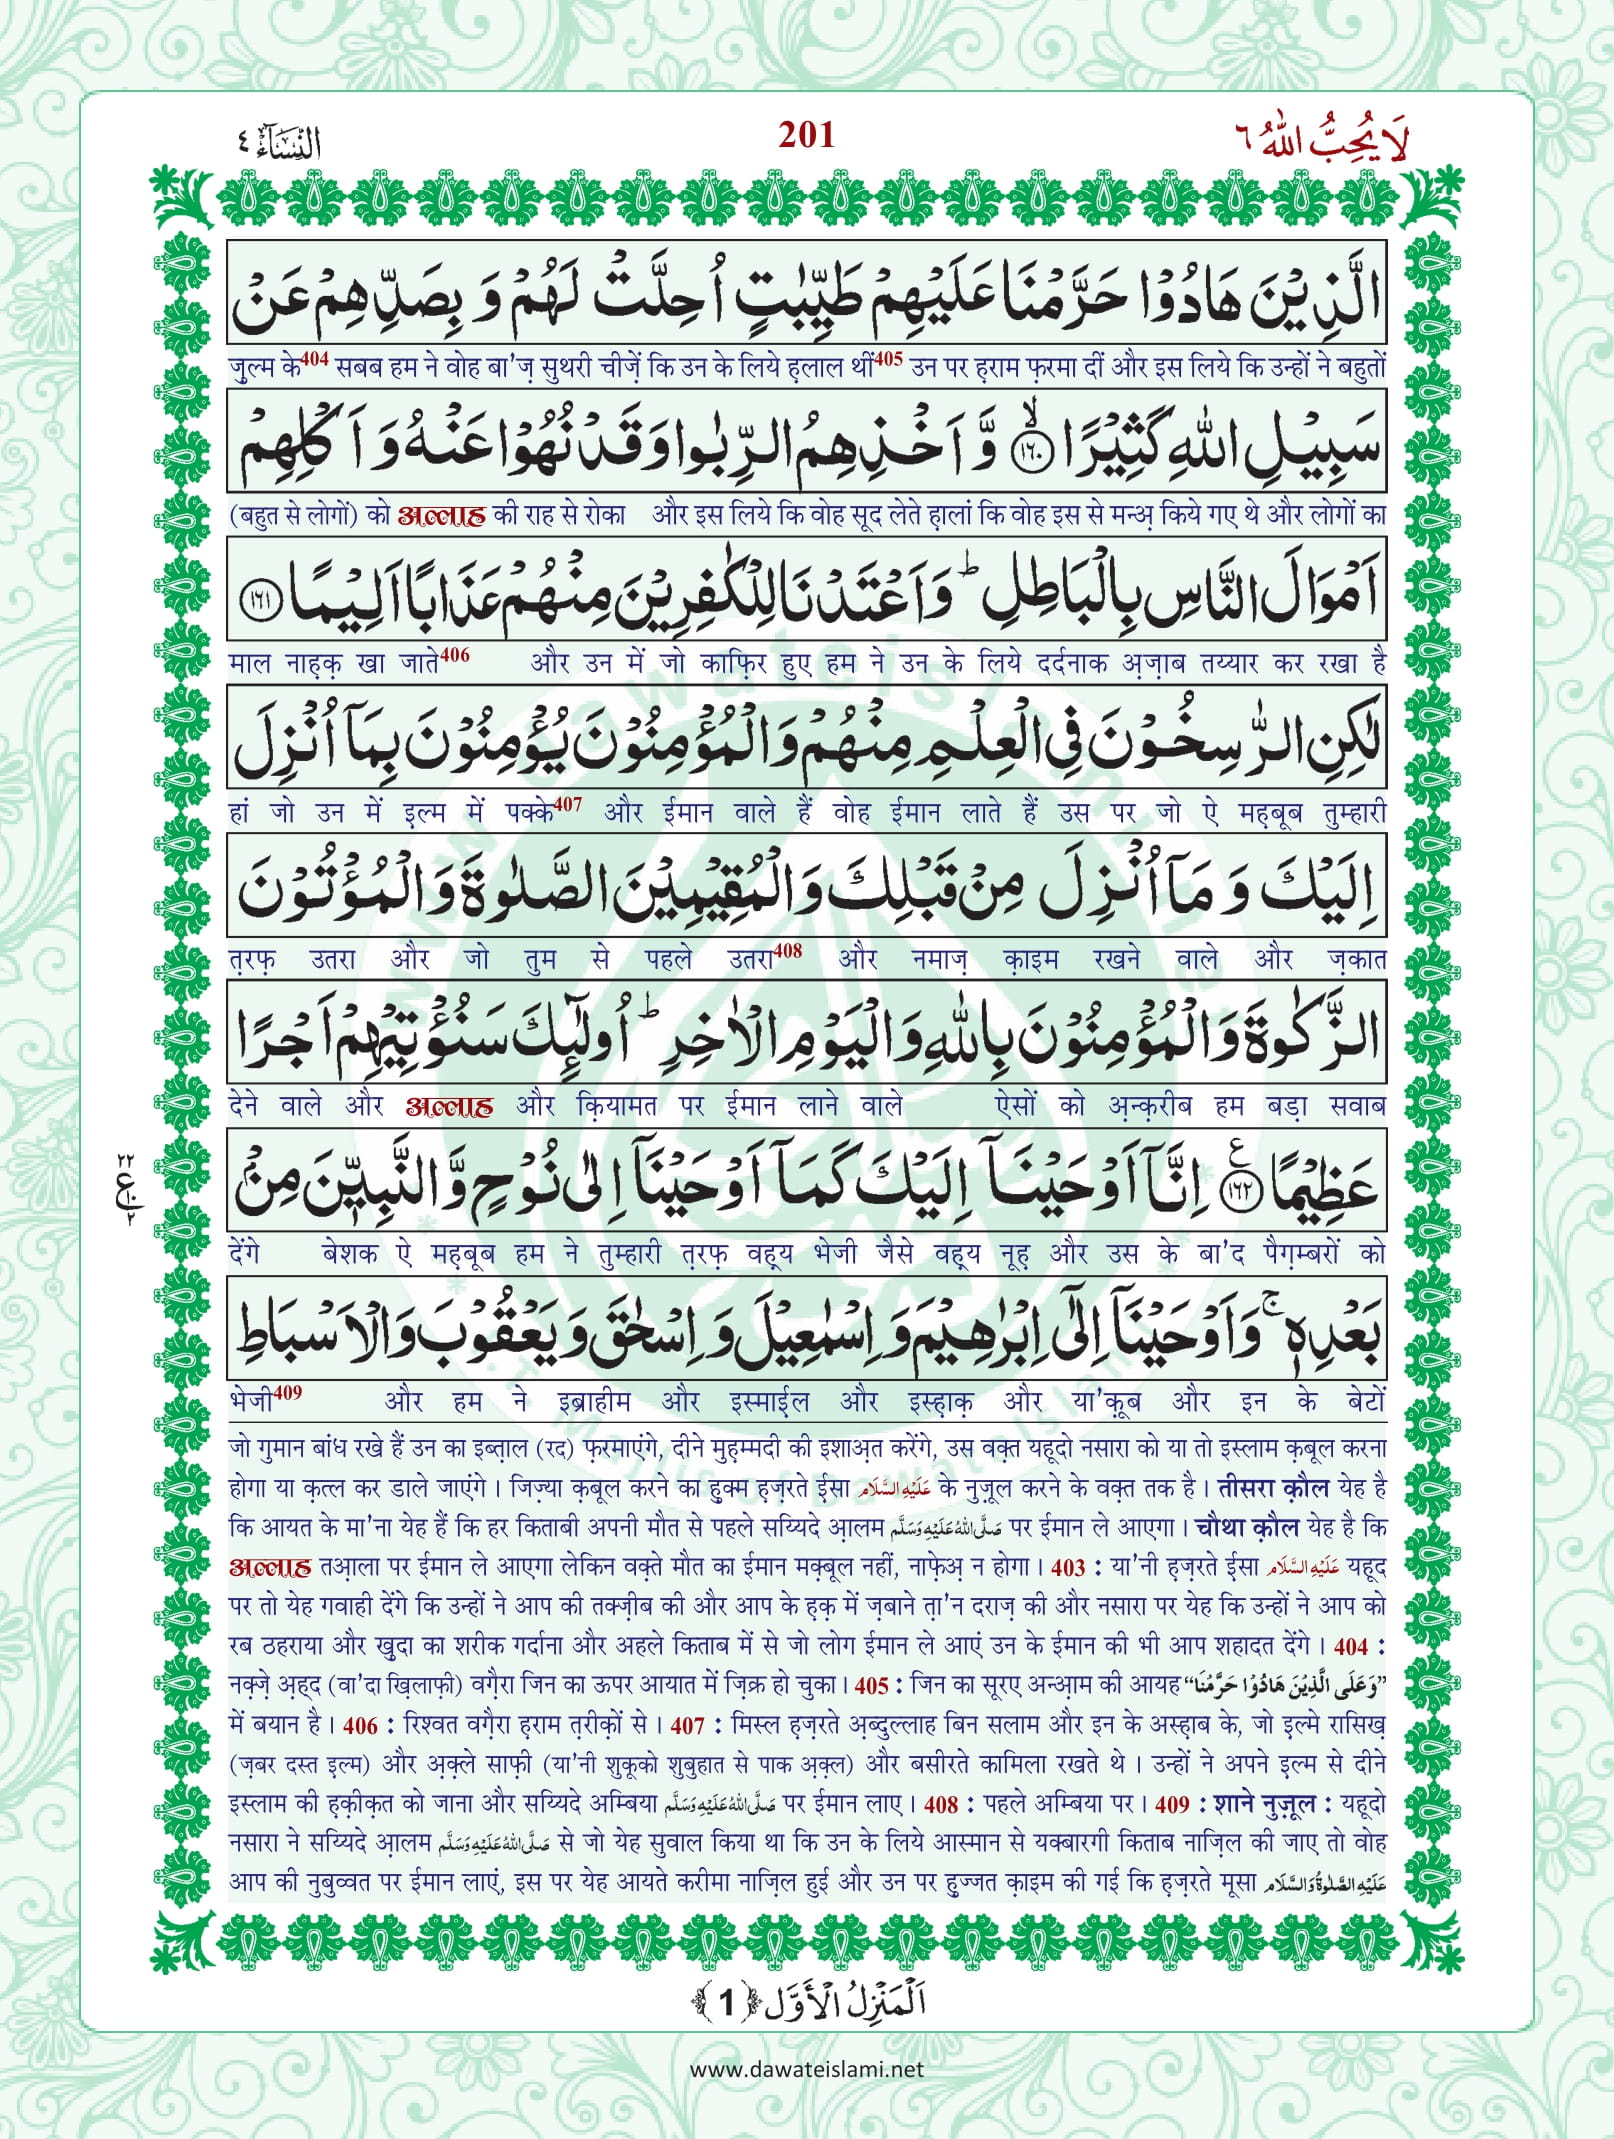 لَا یُحِبُّ اللّٰهُ ٦
201
النِّسَآء ٤
الَّذِیْنَ هَادُوْا حَرَّمْنَا عَلَیْهِمْ طَیِّبٰتٍ اُحِلَّتْ لَهُمْ وَ بِصَدِّهِمْ عَنْ
ज़ुल्म के404 सबब हम ने वोह बा'ज़ सुथरी चीज़ें कि उन के लिये ह़लाल थीं405 उन पर ह़राम फ़रमा दीं और इस लिये कि उन्हों ने बहुतों
سَبِیْلِ اللّٰهِ كَثِیْرًاۙ ۝۱۶۰ وَّ اَخْذِهِمُ الرِّبٰوا وَ قَدْ نُهُوْا عَنْهُ وَ اَكْلِهِمْ
(बहुत से लोगों) को अल्लाह की राह से रोका और इस लिये कि वोह सूद लेते ह़ालां कि वोह इस से मन्अ़ किये गए थे और लोगों का
اَمْوَالَ النَّاسِ بِالْبَاطِلِؕ وَ اَعْتَدْنَا لِلْكٰفِرِیْنَ مِنْهُمْ عَذَابًا اَلِیْمًا ۝۱۶۱
माल नाह़क़ खा जाते406 और उन में जो काफ़िर हुए हम ने उन के लिये दर्दनाक अ़ज़ाब तय्यार कर रखा है
لٰكِنِ الرّٰسِخُوْنَ فِی الْعِلْمِ مِنْهُمْ وَ الْمُؤْمِنُوْنَ یُؤْمِنُوْنَ بِمَاۤ اُنْزِلَ
हां जो उन में इल्म में पक्के407 और ईमान वाले हैं वोह ईमान लाते हैं उस पर जो ऐ मह़बूब तुम्हारी
اِلَیْكَ وَ مَاۤ اُنْزِلَ مِنْ قَبْلِكَ وَ الْمُقِیْمِیْنَ الصَّلٰوةَ وَ الْمُؤْتُوْنَ
त़रफ़ उतरा और जो तुम से पहले उतरा408 और नमाज़ क़ाइम रखने वाले और ज़कात
الزَّكٰوةَ وَ الْمُؤْمِنُوْنَ بِاللّٰهِ وَ الْیَوْمِ الْاٰخِرِؕ اُولٰٓىٕكَ سَنُؤْتِیْهِمْ اَجْرًا
देने वाले और अल्लाह और क़ियामत पर ईमान लाने वाले ऐसों को अ़न्क़रीब हम बड़ा सवाब
عَظِیْمًا۠ ۝۱۶۲ اِنَّاۤ اَوْحَیْنَاۤ اِلَیْكَ كَمَاۤ اَوْحَیْنَاۤ اِلٰى نُوْحٍ وَّ النَّبِیّٖنَ مِنْۢ
٢٢ ع ٢
देंगे बेशक ऐ मह़बूब हम ने तुम्हारी त़रफ़ वह़्य भेजी जैसे वह़्य नूह़ और उस के बा'द पैग़म्बरों को
بَعْدِهٖۚ وَ اَوْحَیْنَاۤ اِلٰۤى اِبْرٰهِیْمَ وَ اِسْمٰعِیْلَ وَ اِسْحٰقَ وَ یَعْقُوْبَ وَ الْاَسْبَاطِ
भेजी409 और हम ने इब्राहीम और इस्माईल और इस्ह़ाक़ और या'क़ूब और इन के बेटों
जो गुमान बांध रखे हैं उन का इब्त़ाल (रद) फ़रमाएंगे, दीने मुह़म्मदी की इशाअ़त करेंगे, उस वक़्त यहूदो नसारा को या तो इस्लाम क़बूल करना
होगा या क़त्ल कर डाले जाएंगे। जिज़्या क़बूल करने का हुक्म ह़ज़रते ईसा عَلَيْهِ السَّلَام के नुज़ूल करने के वक़्त तक है। तीसरा क़ौल येह है
कि आयत के मा'ना येह हैं कि हर किताबी अपनी मौत से पहले सय्यिदे आ़लम صَلَّى اللهُ عَلَيْهِ وَسَلَّم पर ईमान ले आएगा। चौथा क़ौल येह है कि
अल्लाह तआ़ला पर ईमान ले आएगा लेकिन वक़्ते मौत का ईमान मक़्बूल नहीं, नाफ़ेअ़ न होगा। 403 : या'नी ह़ज़रते ईसा عَلَيْهِ السَّلَام यहूद
पर तो येह गवाही देंगे कि उन्हों ने आप की तक्ज़ीब की और आप के ह़क़ में ज़बाने त़ा'न दराज़ की और नसारा पर येह कि उन्हों ने आप को
रब ठहराया और ख़ुदा का शरीक गर्दाना और अहले किताब में से जो लोग ईमान ले आएं उन के ईमान की भी आप शहादत देंगे। 404 :
नक़्ज़े अ़हद (वा'दा ख़िलाफ़ी) वग़ैरा जिन का ऊपर आयात में ज़िक्र हो चुका। 405 : जिन का सूरए अन्आ़म की आयह "وَعَلَى الَّذِيْنَ هَادُوْا حَرَّمْنَا"
में बयान है। 406 : रिश्वत वग़ैरा ह़राम त़रीक़ों से। 407 : मिस्ल ह़ज़रते अ़ब्दुल्लाह बिन सलाम और इन के अस्ह़ाब के, जो इल्मे रासिख़
(ज़बर दस्त इल्म) और अ़क़्ले साफ़ी (या'नी शुकूको शुबुहात से पाक अ़क़्ल) और बसीरते कामिला रखते थे। उन्हों ने अपने इल्म से दीने
इस्लाम की ह़क़ीक़त को जाना और सय्यिदे अम्बिया صَلَّى اللهُ عَلَيْهِ وَسَلَّم पर ईमान लाए। 408 : पहले अम्बिया पर। 409 : शाने नुज़ूल : यहूदो
नसारा ने सय्यिदे आ़लम صَلَّى اللهُ عَلَيْهِ وَسَلَّم से जो येह सुवाल किया था कि उन के लिये आस्मान से यक्बारगी किताब नाज़िल की जाए तो वोह
आप की नुबुव्वत पर ईमान लाएं, इस पर येह आयते करीमा नाज़िल हुई और उन पर हुज्जत क़ाइम की गई कि ह़ज़रते मूसा عَلَيْهِ الصَّلٰوةُ وَالسَّلَام
اَلْمَنْزِلُ الْاَوَّل ﴿1﴾
www.dawateislami.net